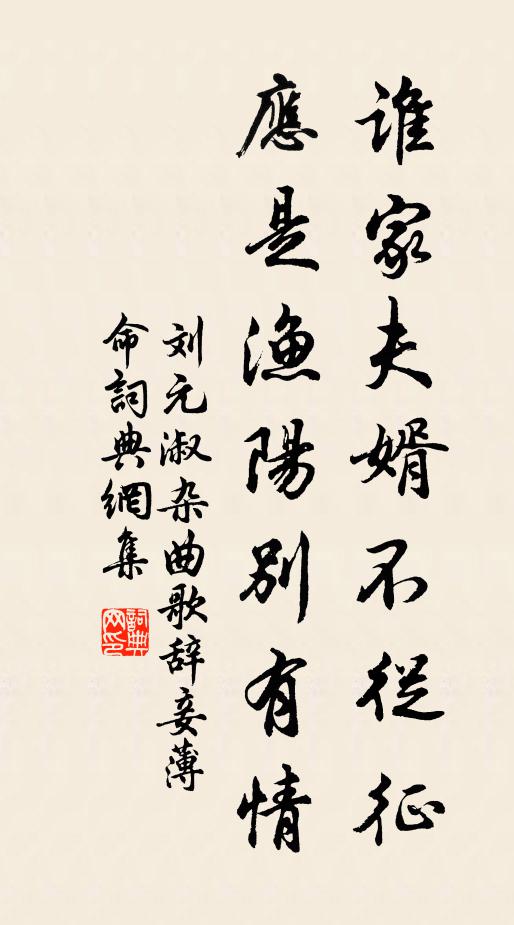 誰家夫婿不從征
應是漁陽別有情
刘元淑杂曲歌辞妾薄
命詞典網集
詞典
网印